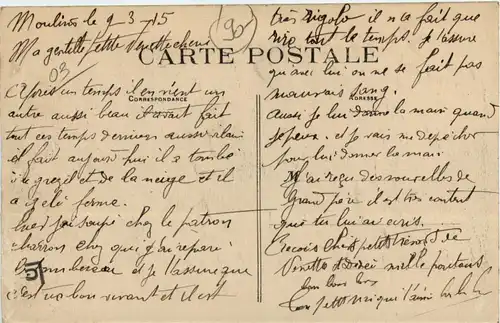 Moulins le 9 3 15
Ma gentille petite Ninette cherie
90
03
CARTE POSTALE
CORRESPONDANCE
ADRESSE
Après un temps il en vient un
autre aussi beau il avait fait
tout ces temps derniers aussi vilain
il fait aujourd hui il a tombé
de la gresil et de la neige et il
a gelé ferme.
hier j'ai soupé chez le patron
charron chez qui j'ai réparé
et je t'assure que
c'est un bon vivant et il est
très rigolo il n'a fait que
rire tout le temps. Je t'assure
qu'avec lui on ne se fait pas
mauvais sang.
aussi je lui donne la main quand
je peux et je vais me depecher
pour lui donner la main
M'a reçu des nouvelles de
Grand père il est très content
que tu lui ai écris.
Recois Chère petit trésor de
Ninette adorée mille poutous
bien bons
Ton petit qui t'aime